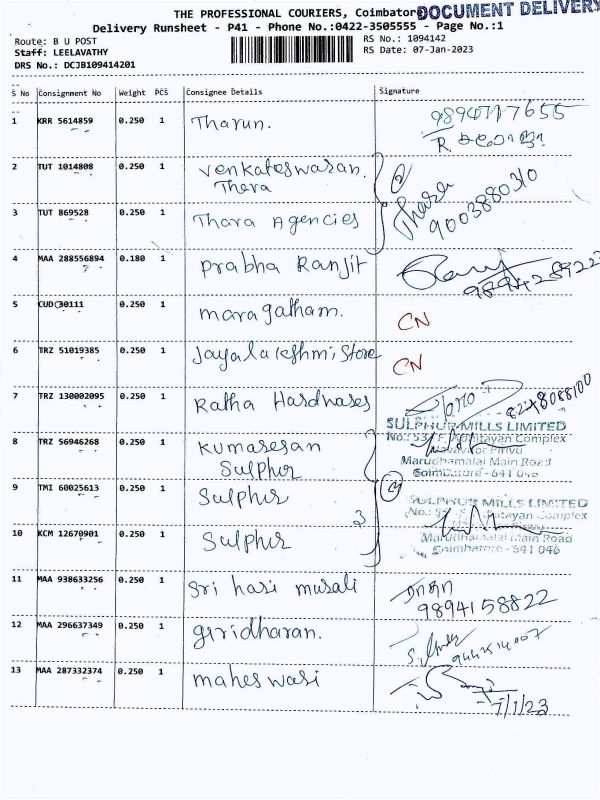 THE PROFESSIONAL COURIERS, Coimbator DOCUMENT DELIVERY
Delivery Runsheet - P41 - Phone No.:0422-3505555 - Page No.:1
Route: B U POST
Staff: LEELAVATHY
DRS No.: DCJB109414201
RS No.: 1094142
RS Date: 07-Jan-2023
S No Consignment No Weight PCS Consignee Details Signature
1 KRR 5614859 0.250 1 Tharun.
2 TUT 1014808 0.250 1 Venkateswaran.
Thera
Thara
9003880310
3 TUT 869528 0.250 1 Thara Agencies
4 MAA 288556894 0.180 1 Prabha Ranjit
5 0.250 1 Maragatham. CN
6 TRZ 51019385 0.250 1 Jayalakshmi Store CN
7 TRZ 130002095 0.250 1 Ratha Hardwares
8 TRZ 56946268 0.250 1 Kumaresan
Sulphur
SULPHUR MILLS LIMITED
Complex
Marudhamalai Main Road
Coimbatore - 641 046
9 TMI 60025613 0.250 1 Sulphur
10 KCM 12670901 0.250 1 Sulphur
3
SULPHUR MILLS LIMITED
Complex
Marudhamalai Main Road
Coimbatore - 641 046
11 MAA 938633256 0.250 1 Sri hari murali
9894158822
12 MAA 296637349 0.250 1 Giridharan.
13 MAA 287332374 0.250 1 Maheswari
7/1/23